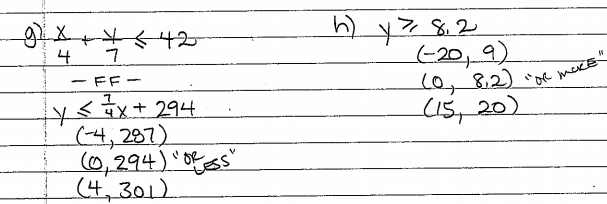 g) x/4 + y/7 ≤ 42
- FF -
y ≤ 7/4x + 294
(-4, 287)
(0, 294) "OR LESS"
(4, 301)
h) y ≥ 8.2
(-20, 9)
(0, 8.2) "OR MORE"
(15, 20)